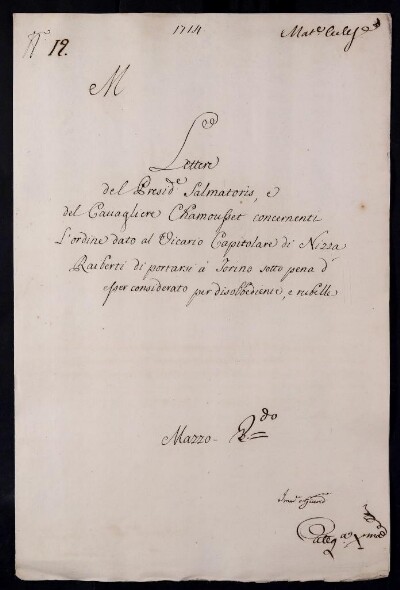 1714
N.º 12.
Mat.e
M
Lettere
del Presid.e Salmatoris, e
del Cavagliere Chamousset concernenti
L'ordine dato al Vicario Capitolare di Nizza
Raiberti di portarsi à Torino sotto pena d'
esser considerato per disobbediente, e rubelle
Mazzo 2.do
Categ.a